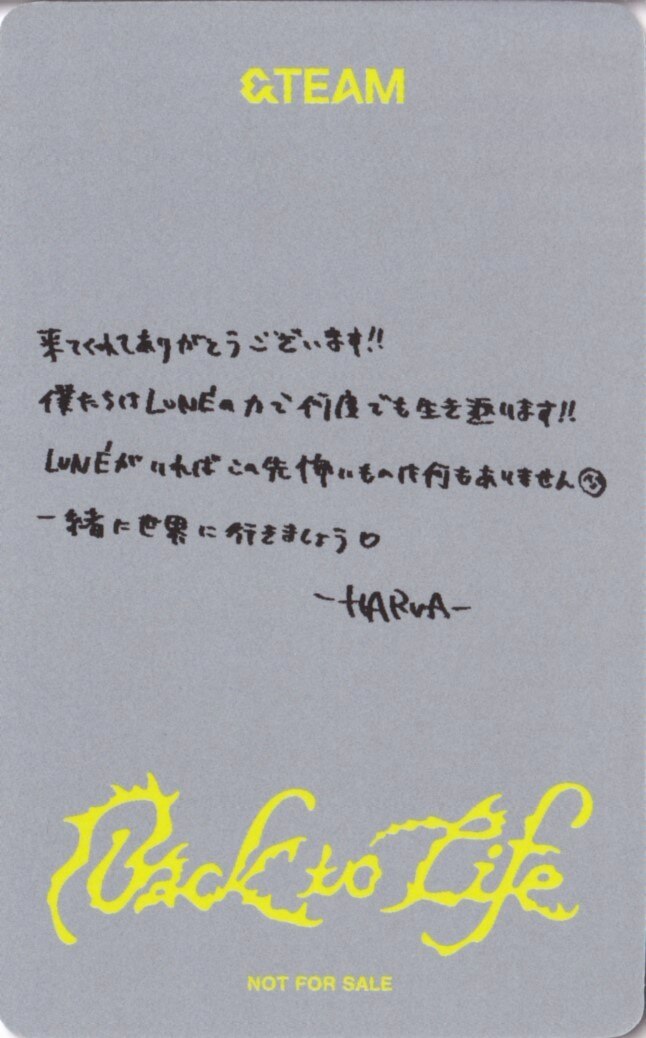 &TEAM
来てくれてありがとうございます!!
僕たちはLUNÉの力で何度でも生き返ります!!
LUNÉがいればこの先怖いものは何もありません
一緒に世界に行きましょう♡
-HARUA-
Back to Life
NOT FOR SALE